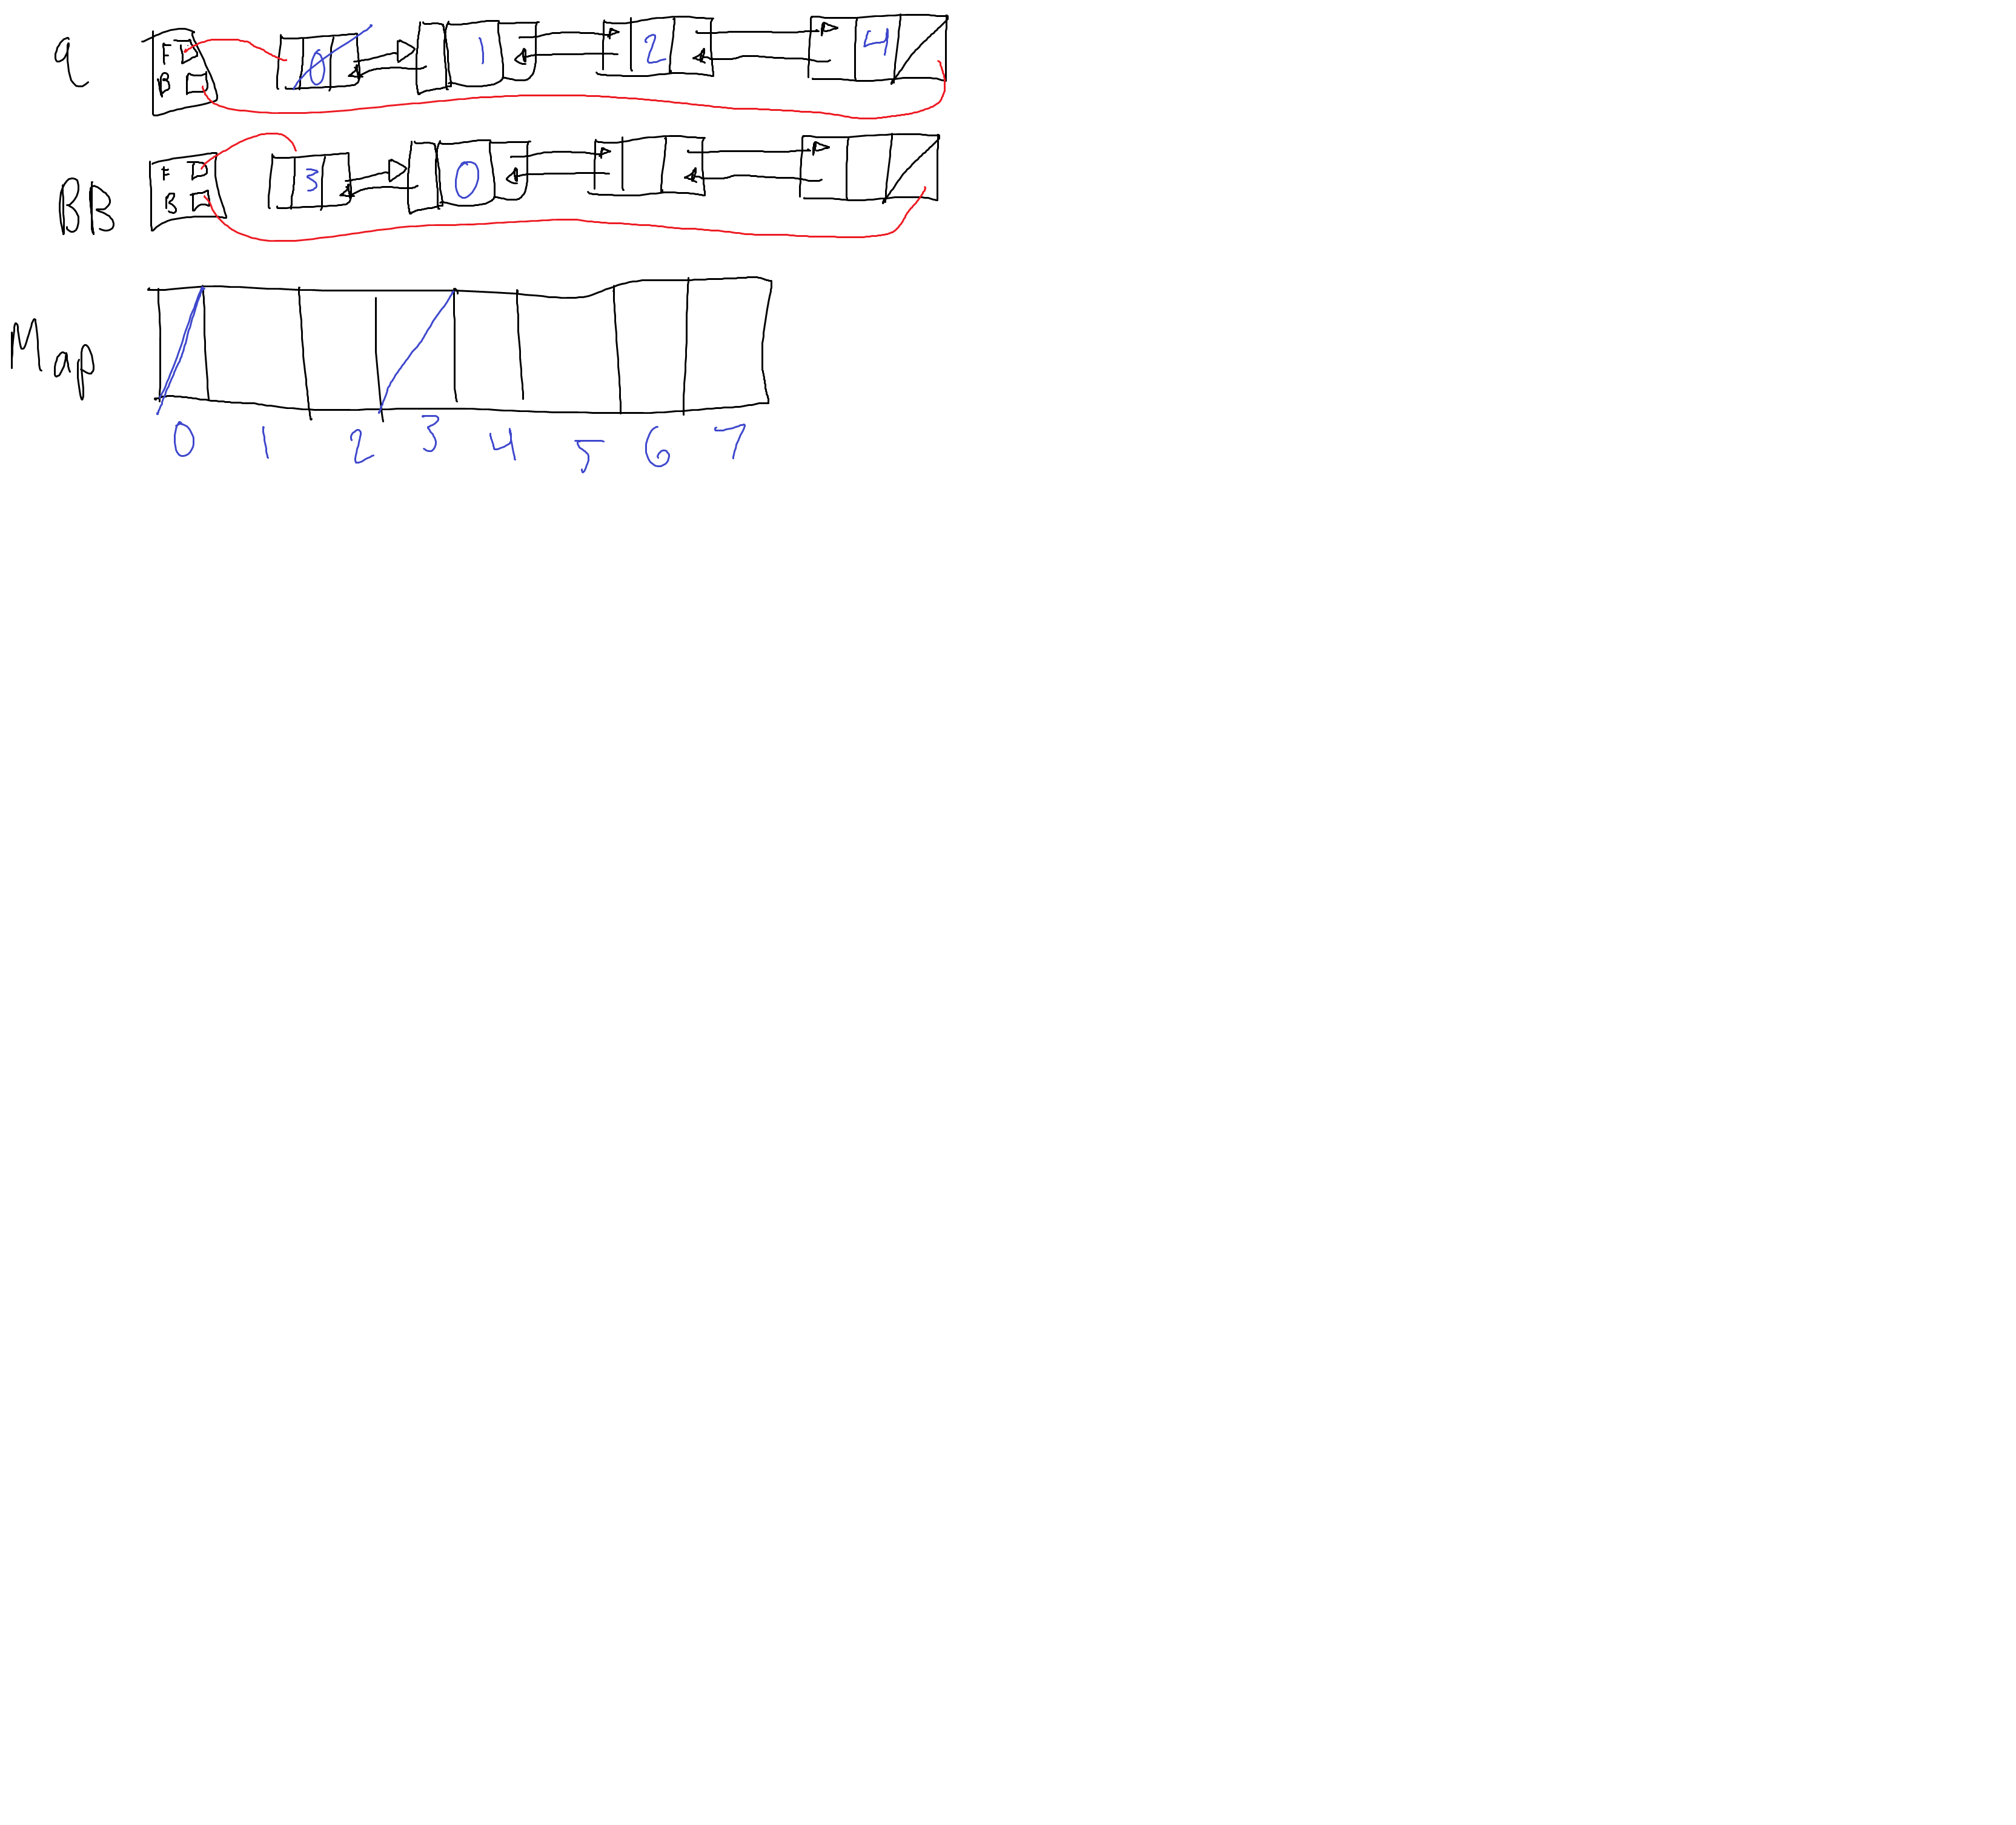 q F B 0 1 2 4
BB F B 3 0
Map
0 1 2 3 4 5 6 7